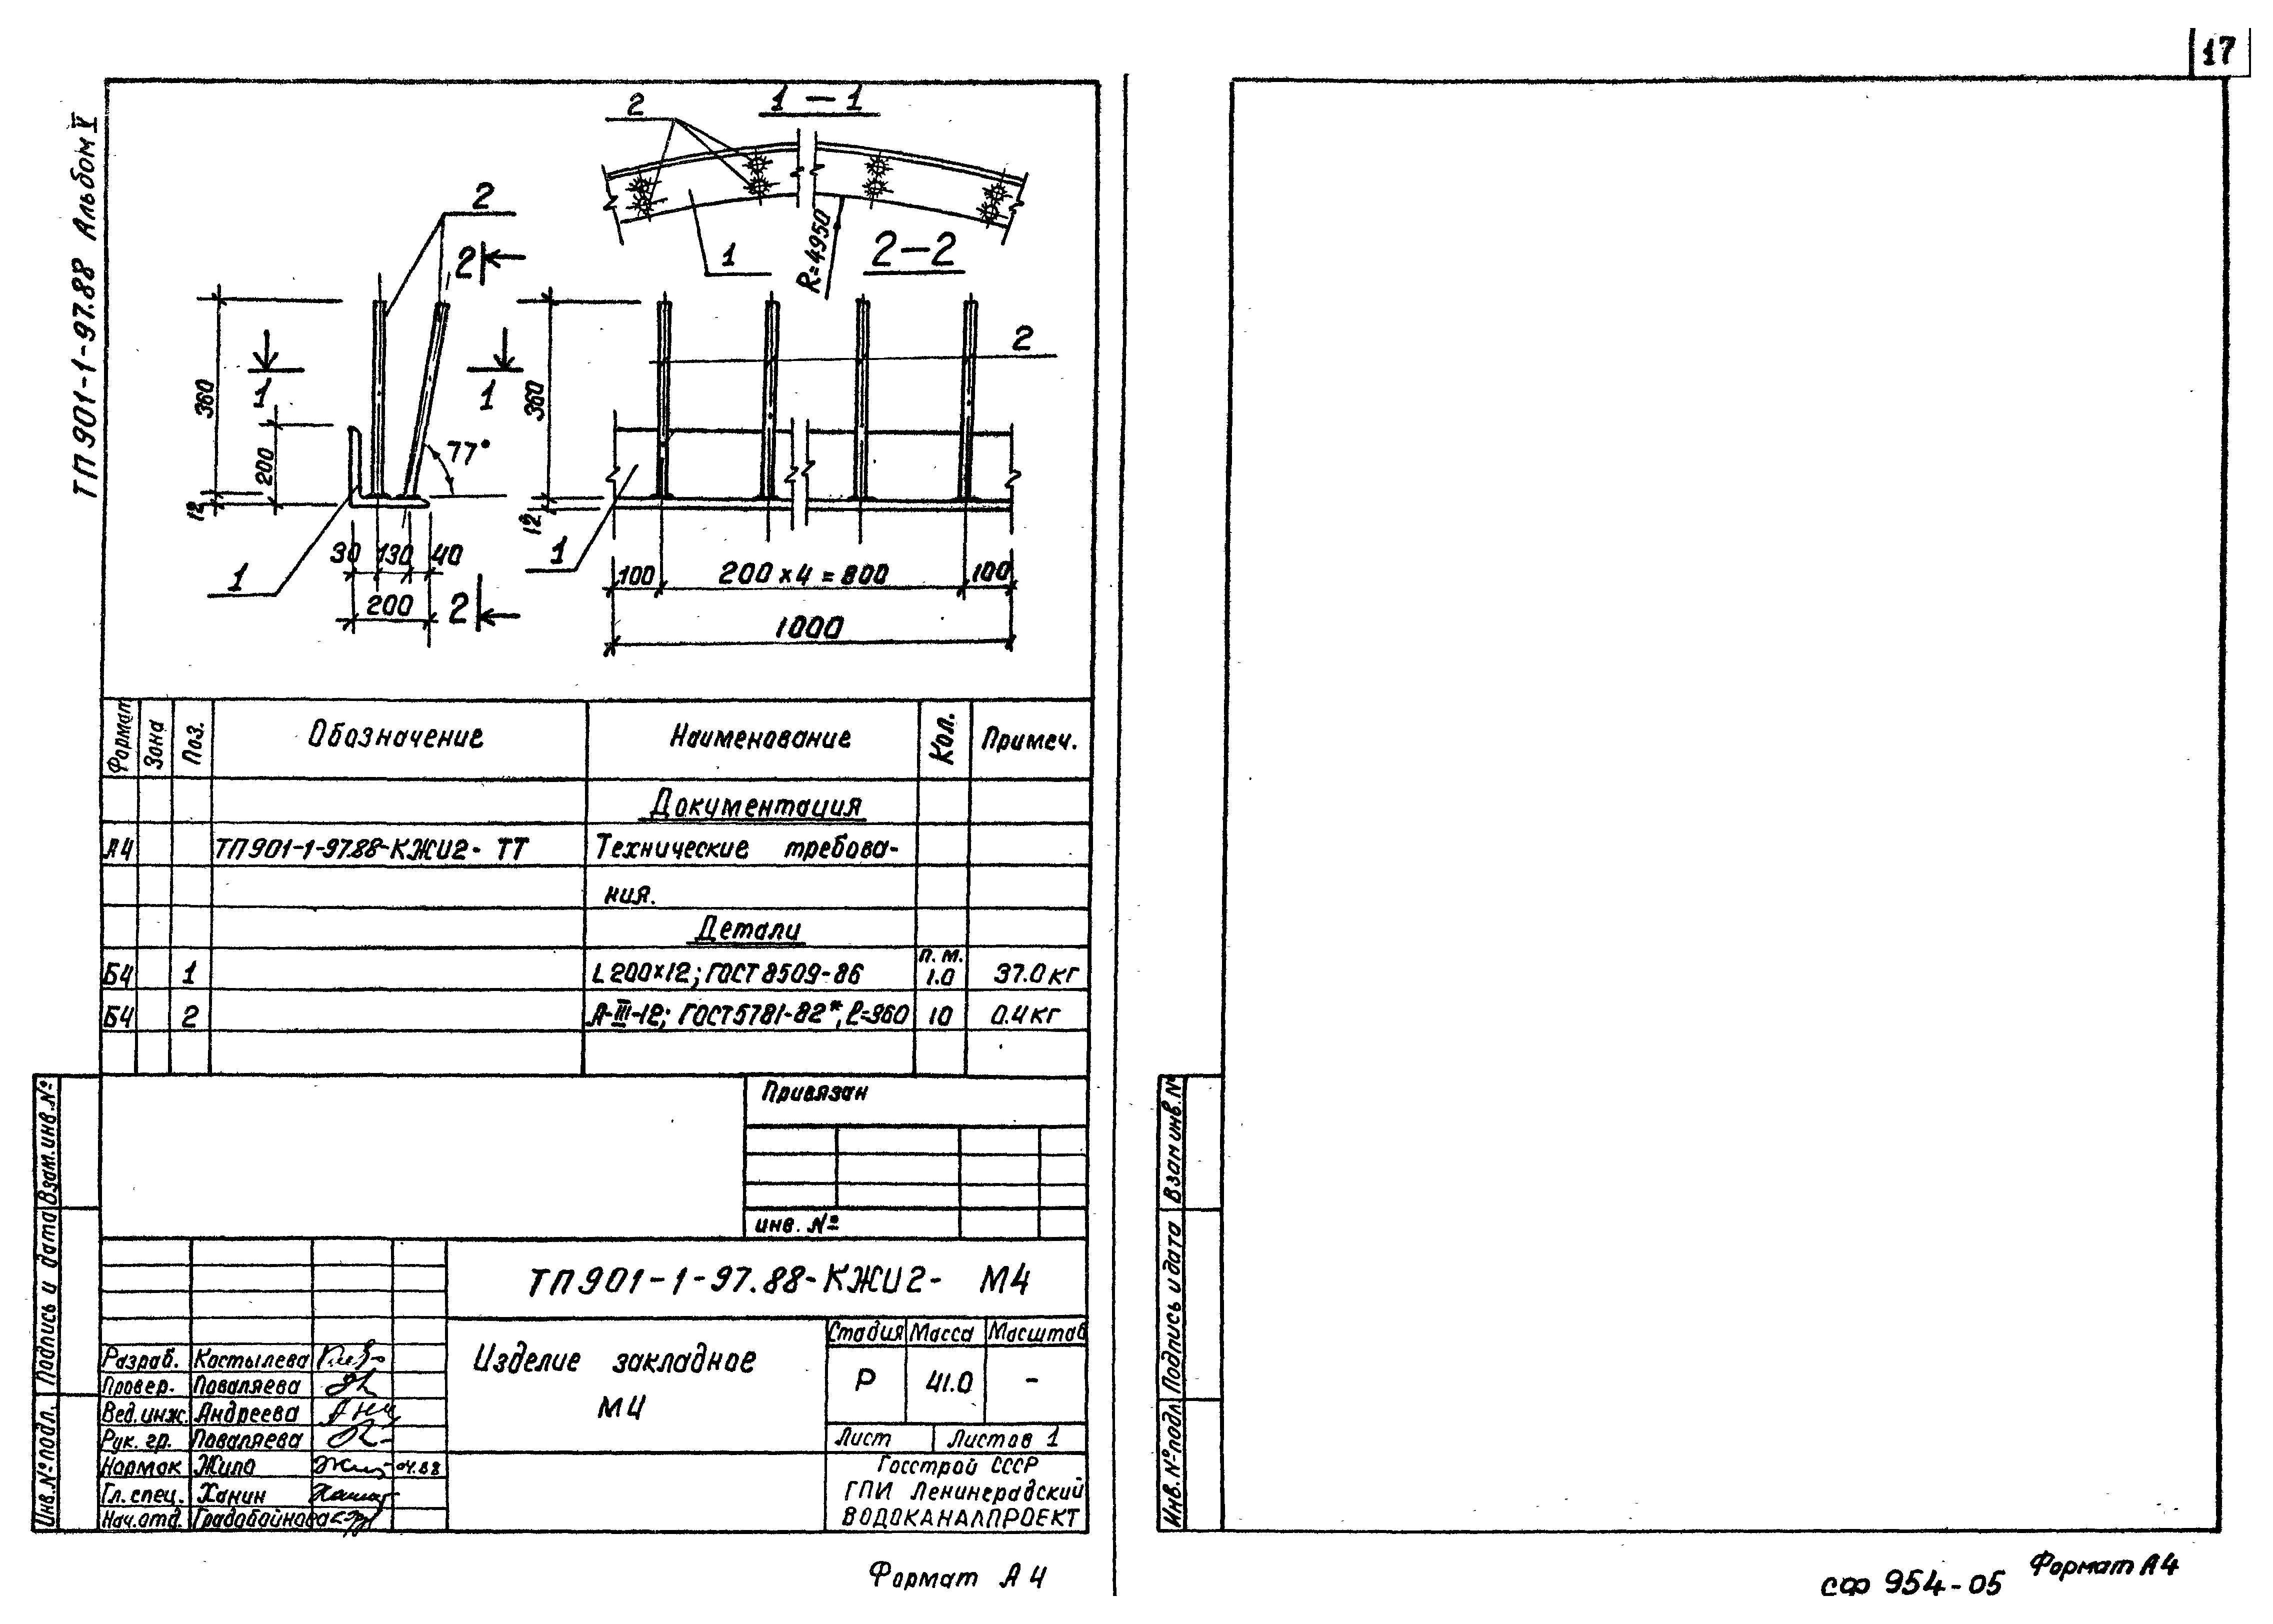 17
ТП901-1-97.88 Альбом V
1-1
2
1
R=4950
2
2
1
1
360
200
12
77°
30 130 40
200
1
2
2-2
2
360
12
1
100 200×4=800 100
1000
Формат Зона Поз. Обозначение Наименование Кол. Примеч.
Документация
А4 ТП901-1-97.88-КЖИ2- ТТ Технические требова-
ния.
Детали
Б4 1 L200×12; ГОСТ 8509-86 п.м. 1.0 37.0кг
Б4 2 А-III-12; ГОСТ5781-82*, ℓ=360 10 0.4кг
Привязан
инв. №
ТП901-1-97.88-КЖИ2- М4
Изделие закладное
М4
Стадия Масса Масштаб
Р 41.0 -
Лист Листов 1
Госстрой СССР
ГПИ Ленинградский
ВОДОКАНАЛПРОЕКТ
Разраб. Костылева
Провер. Поваляева
Вед.инж. Андреева
Рук. гр. Поваляева
Нормок Жила 04.88
Гл. спец. Ханин
Нач.отд. Градобойнова
Инв.№подл. Подпись и дата Взам.инв.№
Формат А4
Инв.№подл Подпись и дата Взам инв.№
СФ 954-05 Формат А4